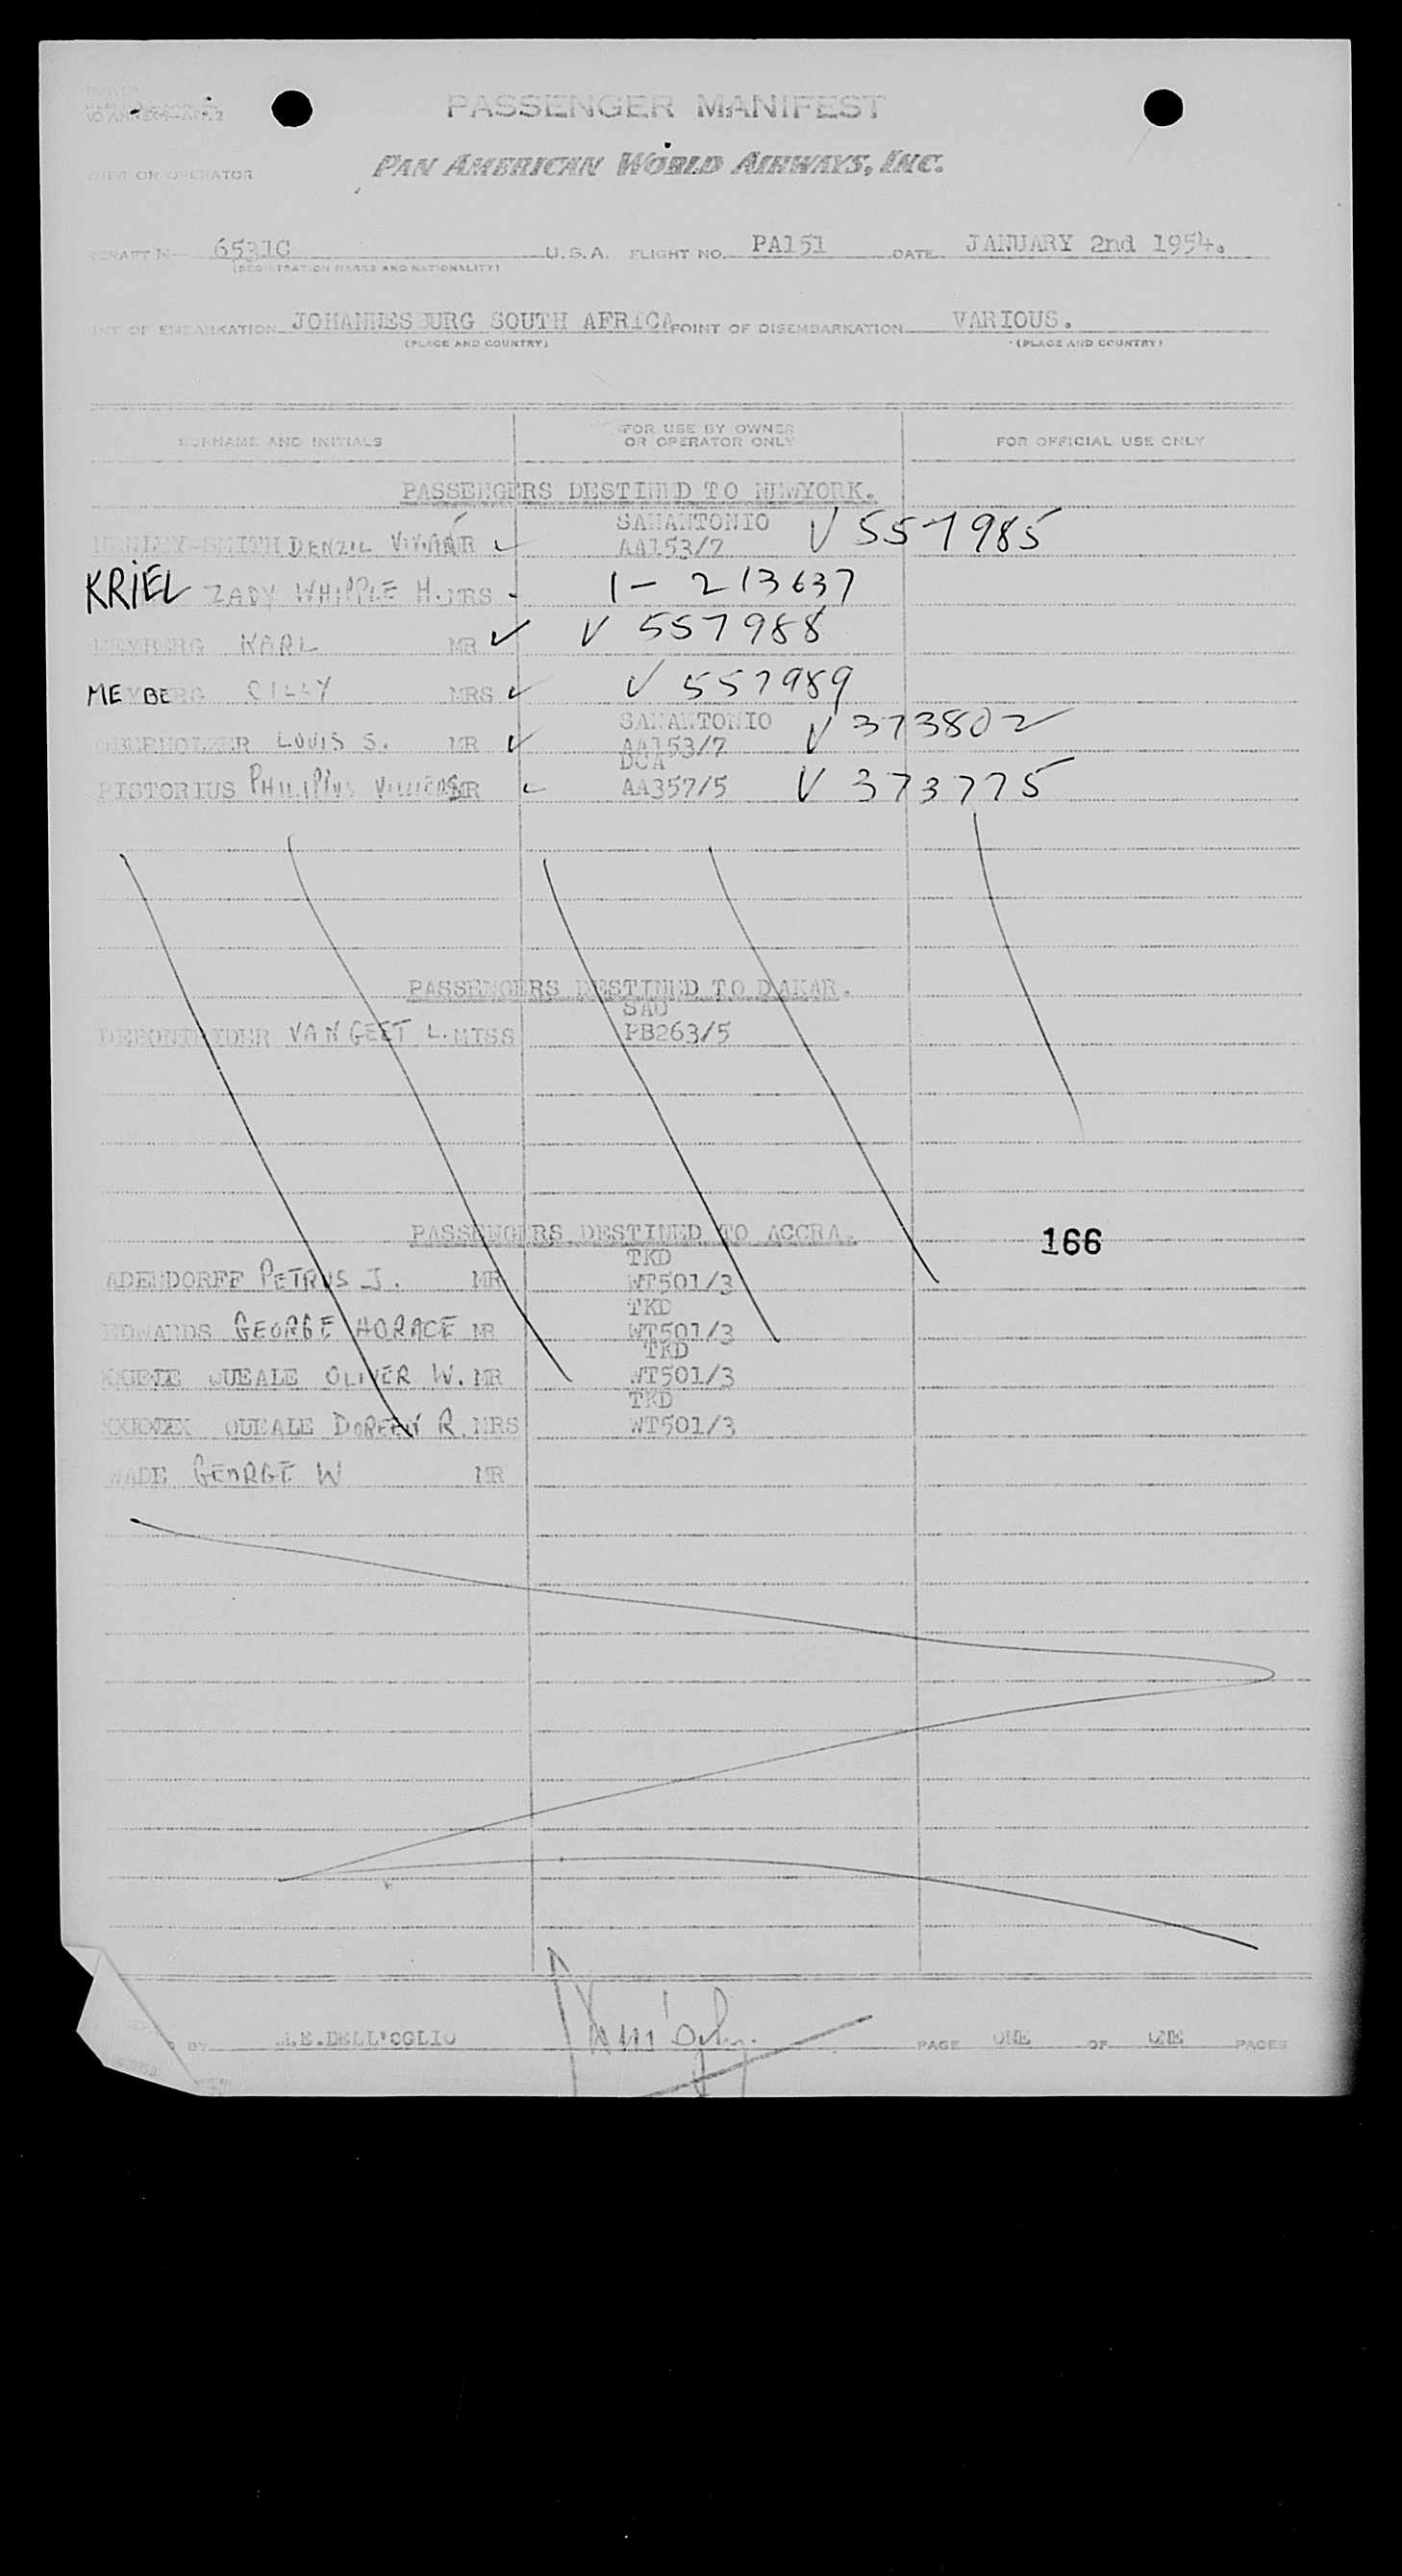 PASSENGER MANIFEST
OR OPERATOR
PAN AMERICAN WORLD AIRWAYS, INC.
6531C U.S.A. FLIGHT NO. PA151 DATE JANUARY 2nd 1954.
(REGISTRATION MARKS AND NATIONALITY)
OF EMBARKATION JOHANNESBURG SOUTH AFRICA POINT OF DISEMBARKATION VARIOUS.
(PLACE AND COUNTRY) (PLACE AND COUNTRY)
SURNAME AND INITIALS FOR USE BY OWNER OR OPERATOR ONLY FOR OFFICIAL USE ONLY
PASSENGERS DESTINED TO NEWYORK.
SANANTONIO V 557985
SMITH DENZIL VIVIAN MR AA153/7
KRIEL ZADY WHIPPLE H. MRS 1-213637
MEYBERG KARL MR V 557988
MEYBERG CILLY MRS V 557989
SANANTONIO V 373802
OBERHOLZER LOUIS S. MR AA153/7
DCA
PISTORIUS PHILIPPUS MR AA357/5 V 373775
PASSENGERS DESTINED TO DAKAR.
SAO
VAN GEET L. MISS PB263/5
PASSENGERS DESTINED TO ACCRA.
166
TKD
ADENDORFF PETRUS J. MR WT501/3
TKD
EDWARDS GEORGE HORACE MR WT501/3
TKD
QUEALE OLIVER W. MR WT501/3
TKD
QUEALE DOREEN R. MRS WT501/3
WADE GEORGE W MR
BY M.E.DELL'OGLIO PAGE ONE OF ONE PAGES